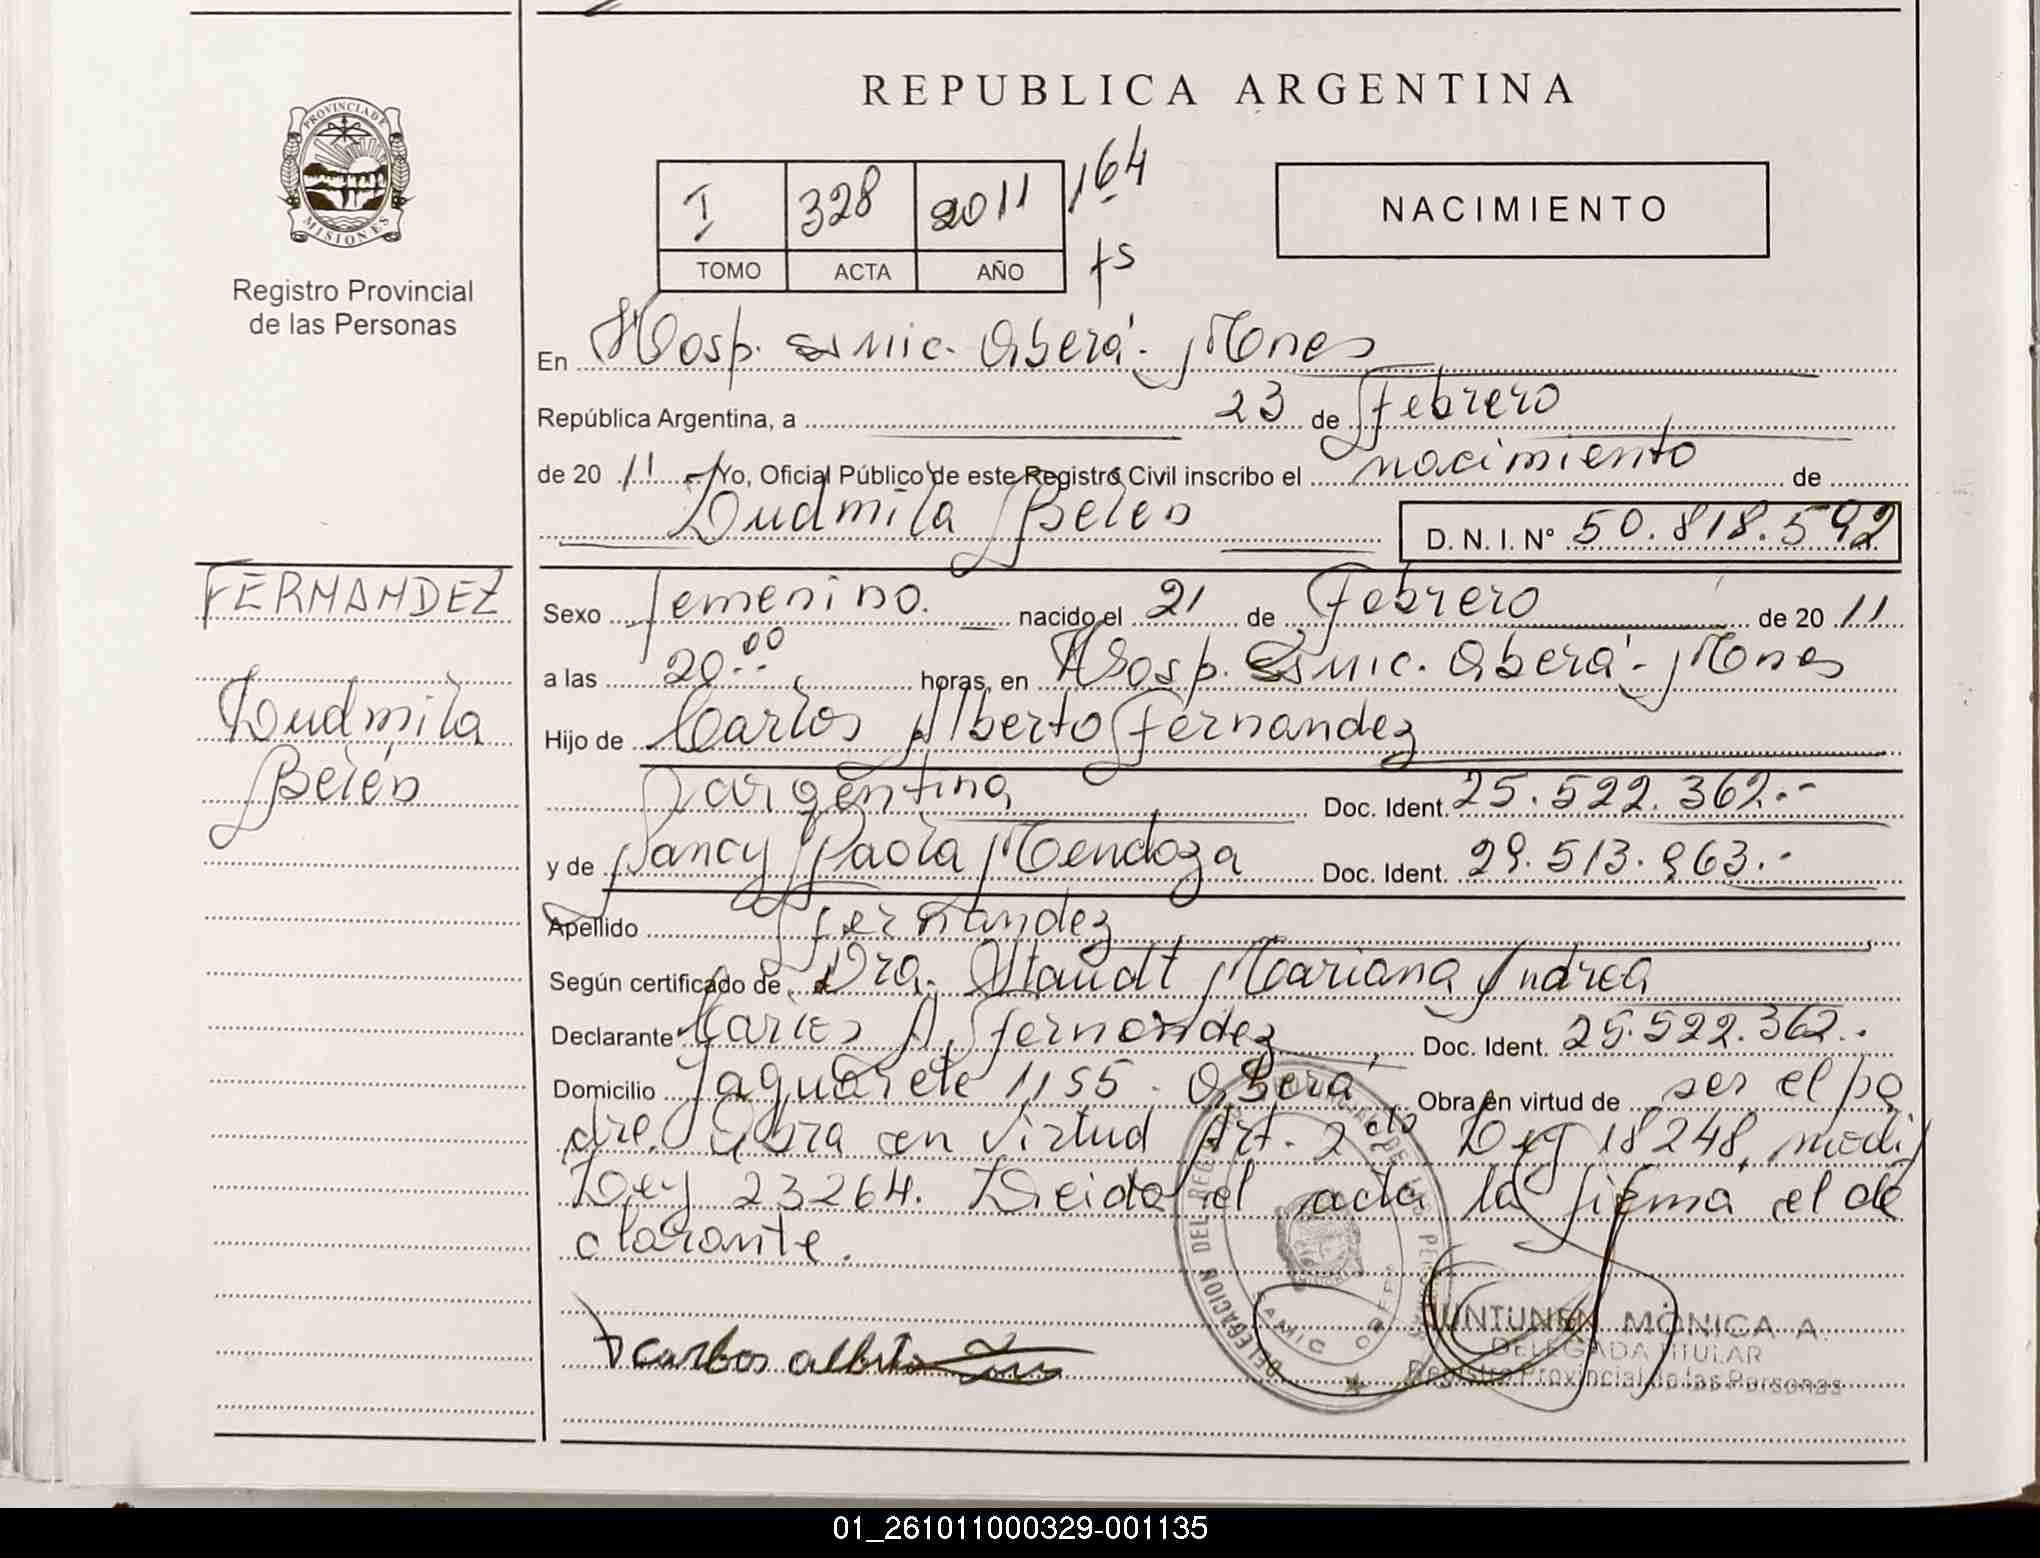 REPUBLICA ARGENTINA
PROVINCIA DE
MISIONES
Registro Provincial
de las Personas
I 328 2011 164
TOMO ACTA AÑO fs
NACIMIENTO
En Hosp. Samic. Oberá - Mnes
República Argentina, a 23 de Febrero
de 2011 Yo, Oficial Público de este Registro Civil inscribo el nacimiento de
Ludmila Belén D. N. I. N° 50.818.592
FERNANDEZ
Ludmila
Belén
Sexo femenino. nacido el 21 de Febrero de 2011
a las 20.00 horas, en Hosp. Samic. Oberá - Mnes
Hijo de Carlos Alberto Fernandez
argentina Doc. Ident. 25.522.362.-
y de Nancy Paola Mendoza Doc. Ident. 29.513.963.-
Apellido Fernandez
Según certificado de Dra. Staudt Mariana Andrea
Declarante Carlos A. Fernandez Doc. Ident. 25.522.362.
Domicilio Yaguarete 1155 - Oberá Obra en virtud de ser el pa
dre. Obra en virtud Art. 2do Ley 18248, modif
Ley 23264. Leida el acta la firma el de
clarante.
carlos alberto
DELEGACION DEL
JUNTUNEN MÓNICA A.
DELEGADA TITULAR
Registro Provincial de las Personas
01_261011000329-001135